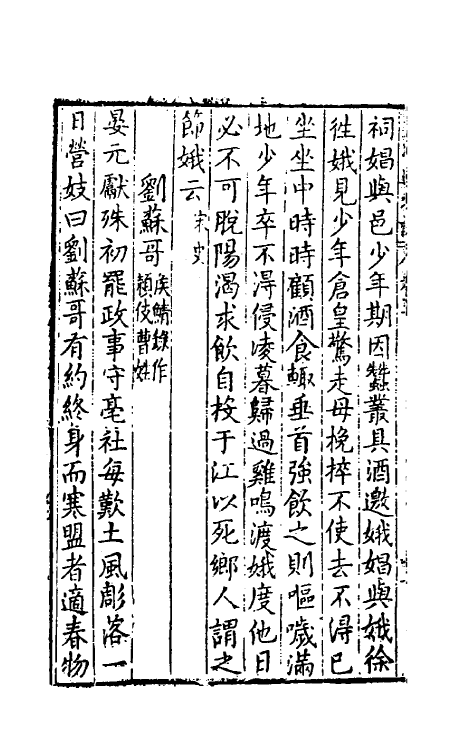 祠娼與邑少年期因蠶叢具酒邀娥娼與娥徐
徃娥見少年倉皇驚走母挽捽不使去不得已
坐坐中時時顧酒食輙垂首強飲之則嘔噦滿
地少年卒不淂侵凌暮歸過雞鳴渡娥度他日
必不可脫陽渴求飲自投于江以死鄉人謂之
節娥云 宋史
劉蘇哥 侯鯖錄作
頼伎曹姓
晏元獻殊初罷政事守亳社每歎土風彫落一
日營妓曰劉蘇哥有約終身而寒盟者適春物